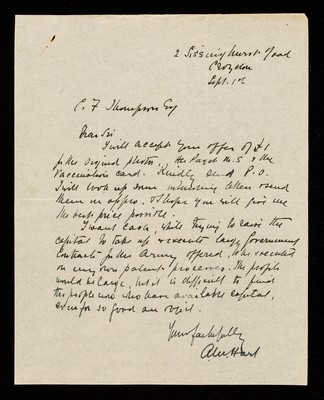 2 Sissinghurst Road
Croydon
Sept. 1st
C. F. Thompson Esq
Dear Sir
I will accept your offer of £1
for the original photos, the Paget No. 5 & the
Vaccination card. Kindly send P.O.
I will look up some interesting letters & send
them on appro. & I hope you will give me
the best price possible.
I want cash, while trying to raise the
capital to take up & execute large Government
Contracts for the Army offered, to be executed
on my own patent processes. The profits
would be large, but it is difficult to find
the people now who have available capital,
even for so good an object.
Yours faithfully
Hart